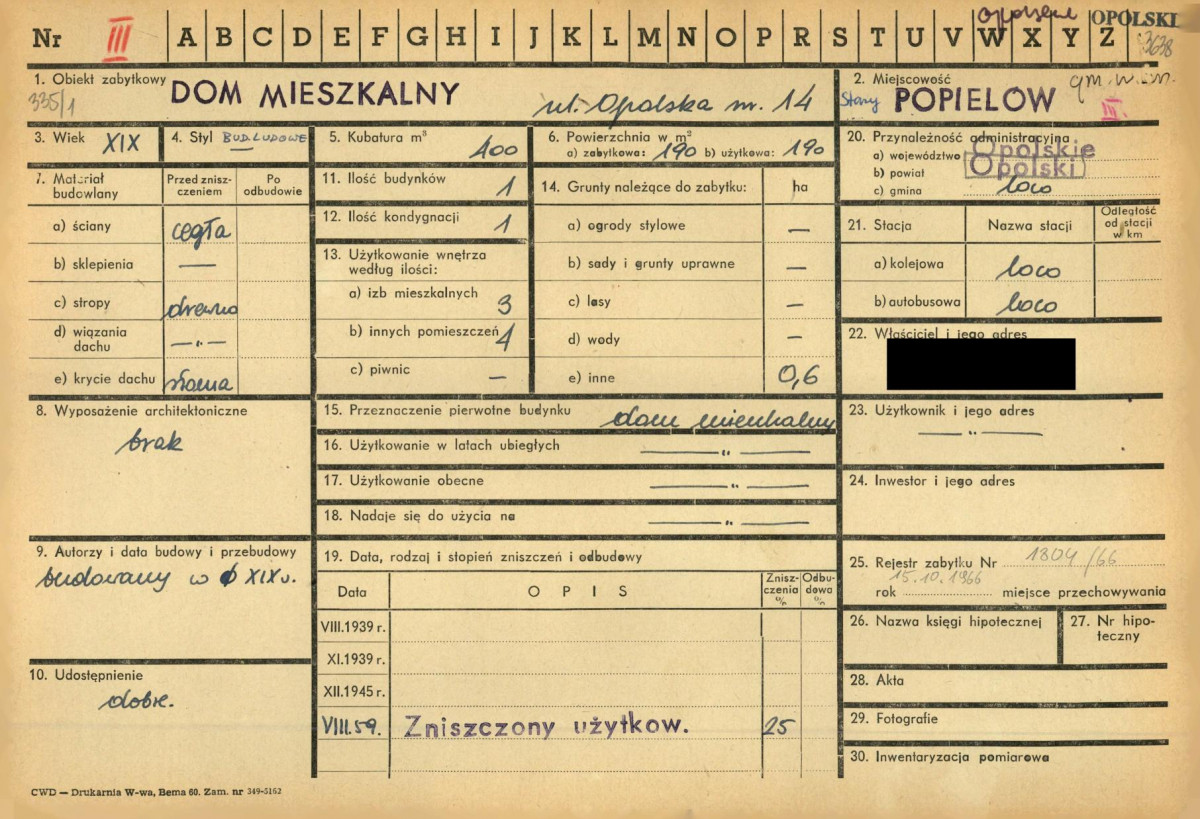 Nr III A B C D E F G H I J K L M N O P R S T U V W X Y Z
opolskie OPOLSKI
3638
1. Obiekt zabytkowy DOM MIESZKALNY ul. Opolska nr. 14
335/1
2. Miejscowość
Stary POPIELOW
III.
3. Wiek XIX
4. Styl BUD. LUDOWE
5. Kubatura m³ 400
6. Powierzchnia w m²
a) zabytkowa: 190 b) użytkowa: 190
7. Materiał budowlany
Przed zniszczeniem
Po odbudowie
a) ściany cegła
b) sklepienia —
c) stropy drewno
d) wiązania dachu —„—
e) krycie dachu słoma
8. Wyposażenie architektoniczne
brak
9. Autorzy i data budowy i przebudowy
budowany w XIX w.
10. Udostępnienie
dobre.
11. Ilość budynków 1
12. Ilość kondygnacji 1
13. Użytkowanie wnętrza według ilości:
a) izb mieszkalnych 3
b) innych pomieszczeń 4
c) piwnic —
14. Grunty należące do zabytku: ha
a) ogrody stylowe —
b) sady i grunty uprawne —
c) lasy —
d) wody —
e) inne 0,6
15. Przeznaczenie pierwotne budynku dom mieszkalny
16. Użytkowanie w latach ubiegłych —„—
17. Użytkowanie obecne —„—
18. Nadaje się do użycia na —„—
19. Data, rodzaj i stopień zniszczeń i odbudowy
Data
OPIS
Zniszczenia %
Odbudowa %
VIII.1939 r.
XI.1939 r.
XII.1945 r.
VIII.59. Zniszczony użytkow. 25
20. Przynależność administracyjna
a) województwo Opolskie
b) powiat Opolski
c) gmina loco
21. Stacja
Nazwa stacji
Odległość od stacji w km
a) kolejowa loco
b) autobusowa loco
22. Właściciel i jego adres
23. Użytkownik i jego adres
—„—
24. Inwestor i jego adres
25. Rejestr zabytku Nr 1804/66
15.10.1966
rok miejsce przechowywania
26. Nazwa księgi hipotecznej
27. Nr hipoteczny
28. Akta
29. Fotografie
30. Inwentaryzacja pomiarowa
CWD — Drukarnia W-wa, Bema 60. Zam. nr 349-5162